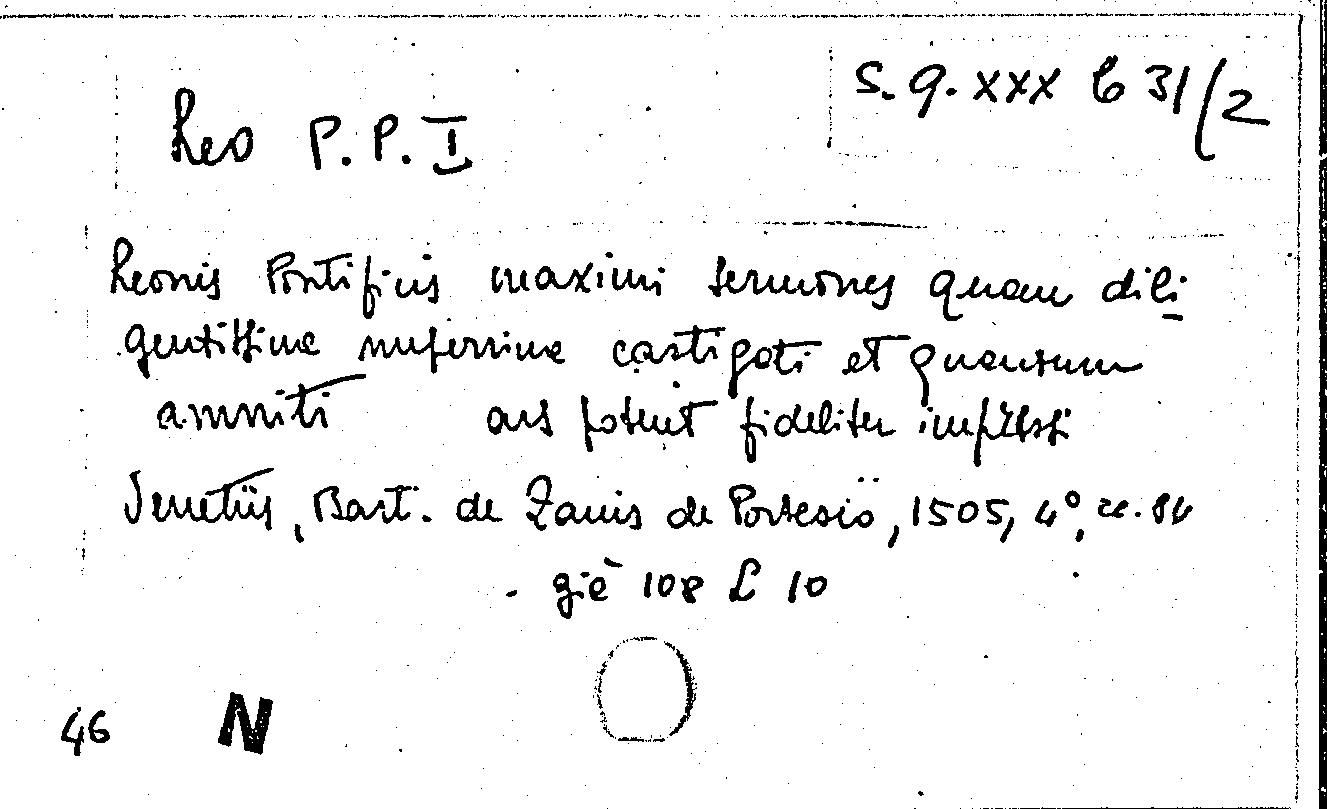 S. q. XXX b 31/2
Leo P.P. I
Leonis Pontificis maximi sermones quam dili
gentissime nuperrime castigati et quantum
anniti ars potuit fideliter impressi
Venetiis, Bart. de Zanis de Portesio, 1505, 4°, cc. 84
già 108 L 10
46 N